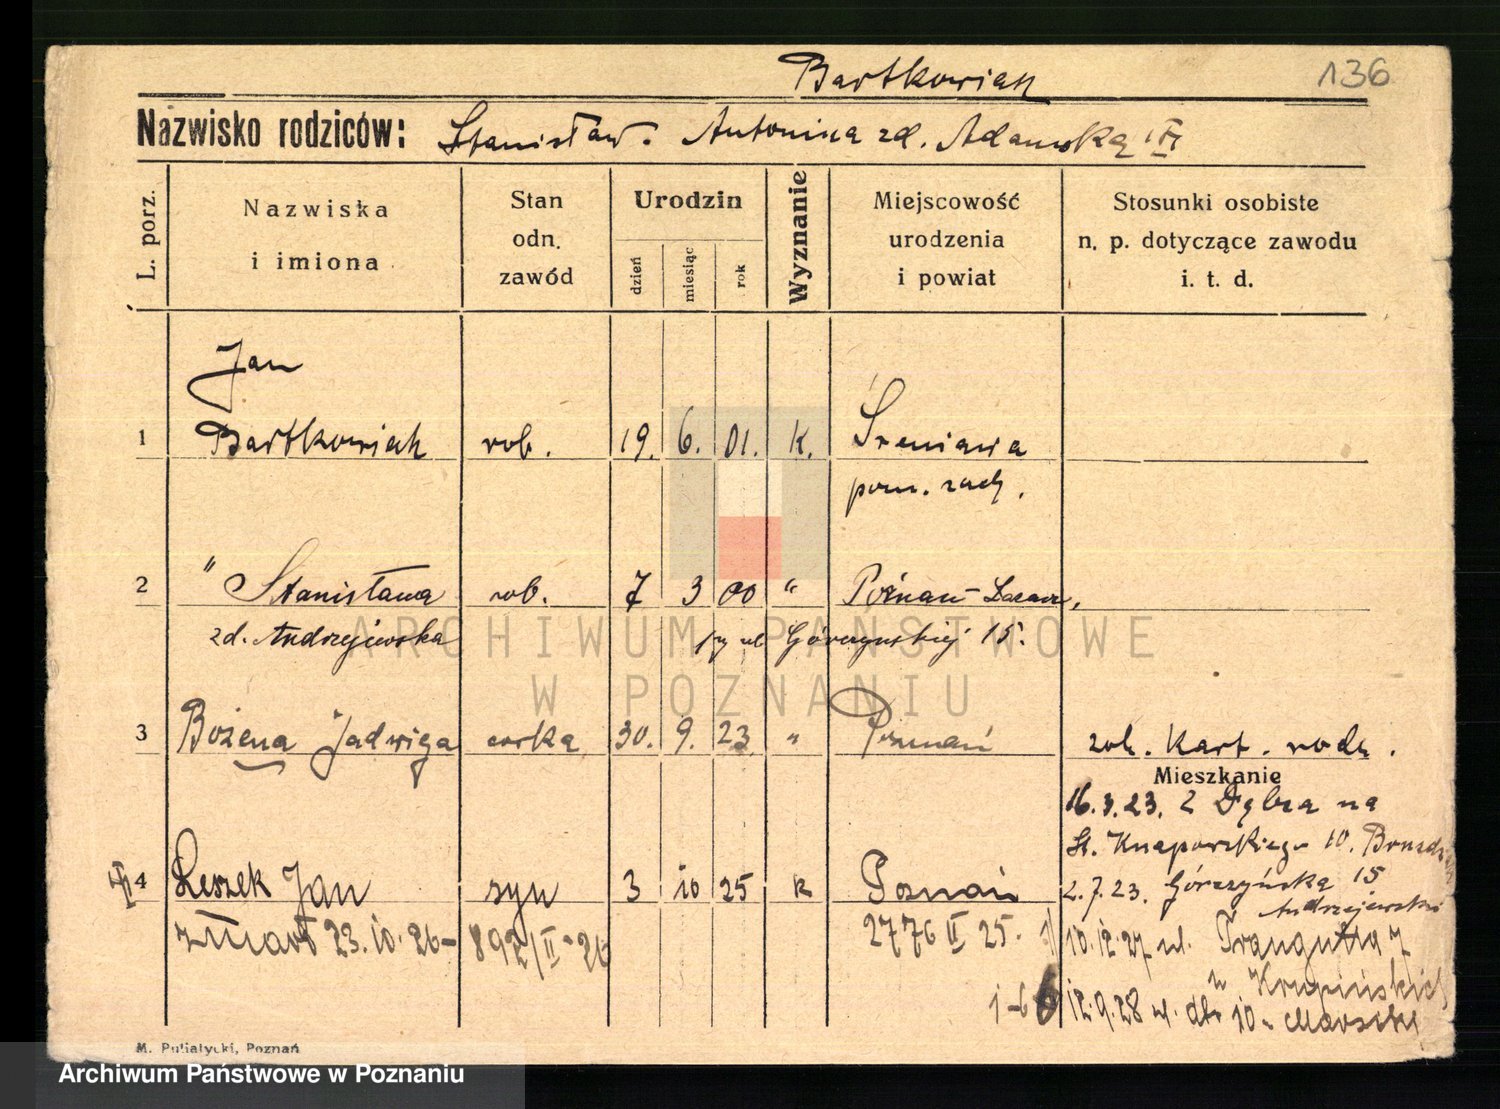 Bartkowiak
136
Nazwisko rodziców: Stanisław. Antonina zd. Adamską
L. porz.
Nazwiska i imiona
Stan odn. zawód
Urodzin
dzień
miesiąc
rok
Wyznanie
Miejscowość urodzenia i powiat
Stosunki osobiste n. p. dotyczące zawodu i. t. d.
Jan
1 Bartkowiak rob. 19. 6. 01. k. Śreniawa
pow. zach.
2 " Stanisława rob. 7 3 00 " Poznań-Łazarz,
zd. Andrzejewska przy ul Górczyńskiej 15.
3 Bożena Jadwiga córka 30. 9. 23 " Poznań zob. Kart. rodz.
Mieszkanie
16.3.23. z Dębca na
St. Knapowskiego 10.
4 Leszek Jan syn 3 10 25 k Poznań
2.7.23. Górczyńska 15
Andrzejewski
zmarł 23.10.26- 892/II-26 2776 II 25.
10.12.27 ul. Traugutta 7
u Krupińskich
1-6 12.9.28 ul. 10
M. Putiatycki, Poznań
ARCHIWUM PAŃSTWOWE
W POZNANIU
Archiwum Państwowe w Poznaniu